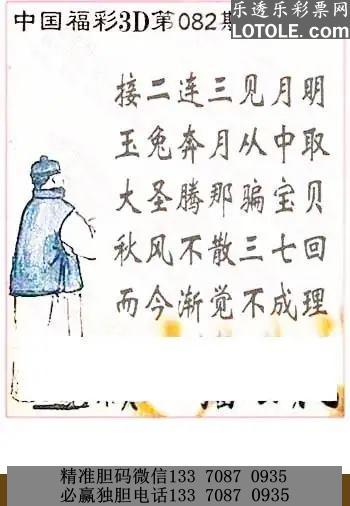 中国福彩3D第082期
乐透乐彩票网
LOTOLE.com
接二连三见月明
玉兔奔月从中取
大圣腾那骗宝贝
秋风不散三七回
而今渐觉不成理
精准胆码微信133 7087 0935
必赢独胆电话133 7087 0935